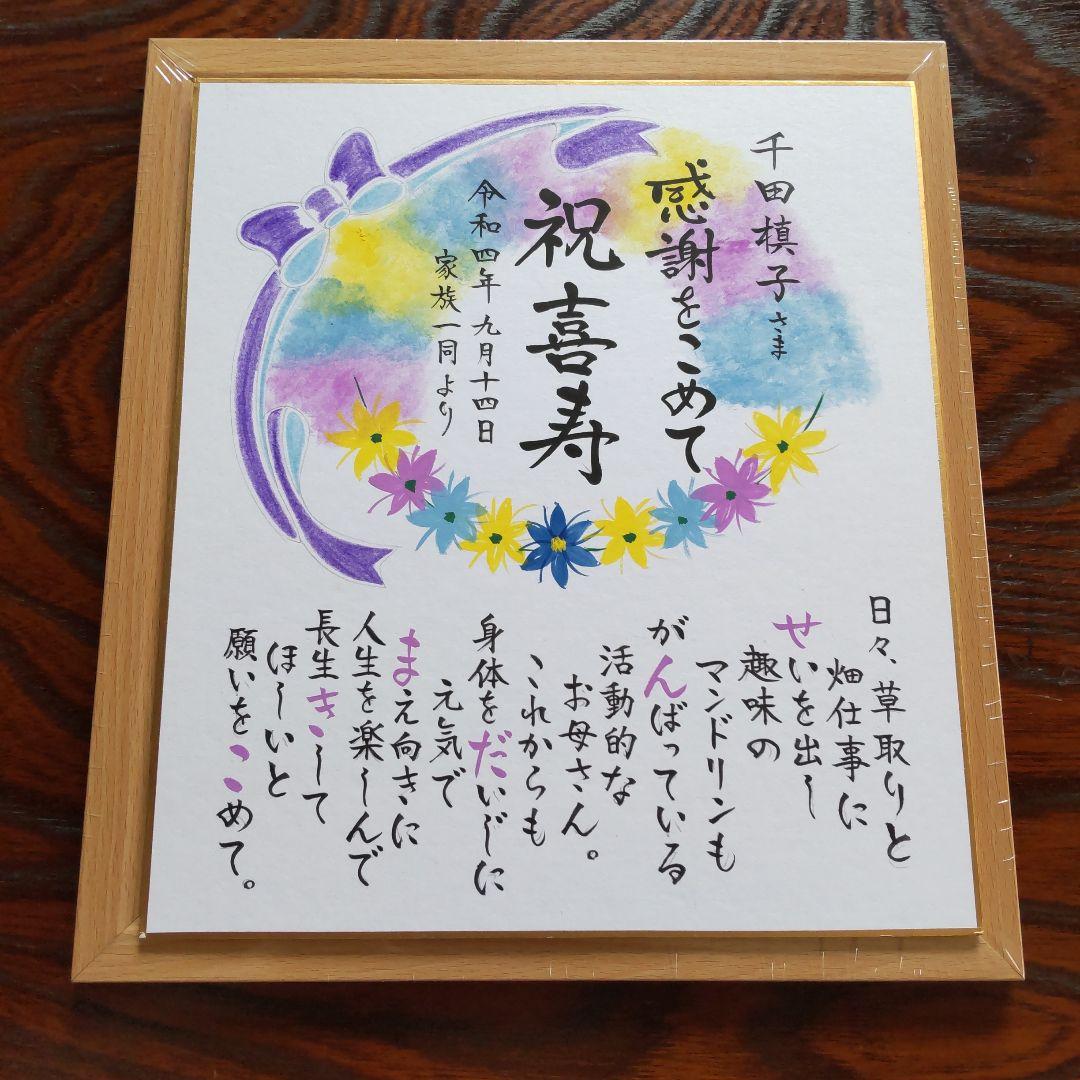 千田槙子さま
感謝をこめて
祝喜寿
令和四年九月十四日
家族一同より
日々、草取りと
畑仕事に
せいを出し
趣味の
マンドリンも
がんばっている
活動的な
お母さん。
これからも
身体をだいじに
元気で
まえ向きに
人生を楽しんで
長生きして
ほしいと
願いをこめて。